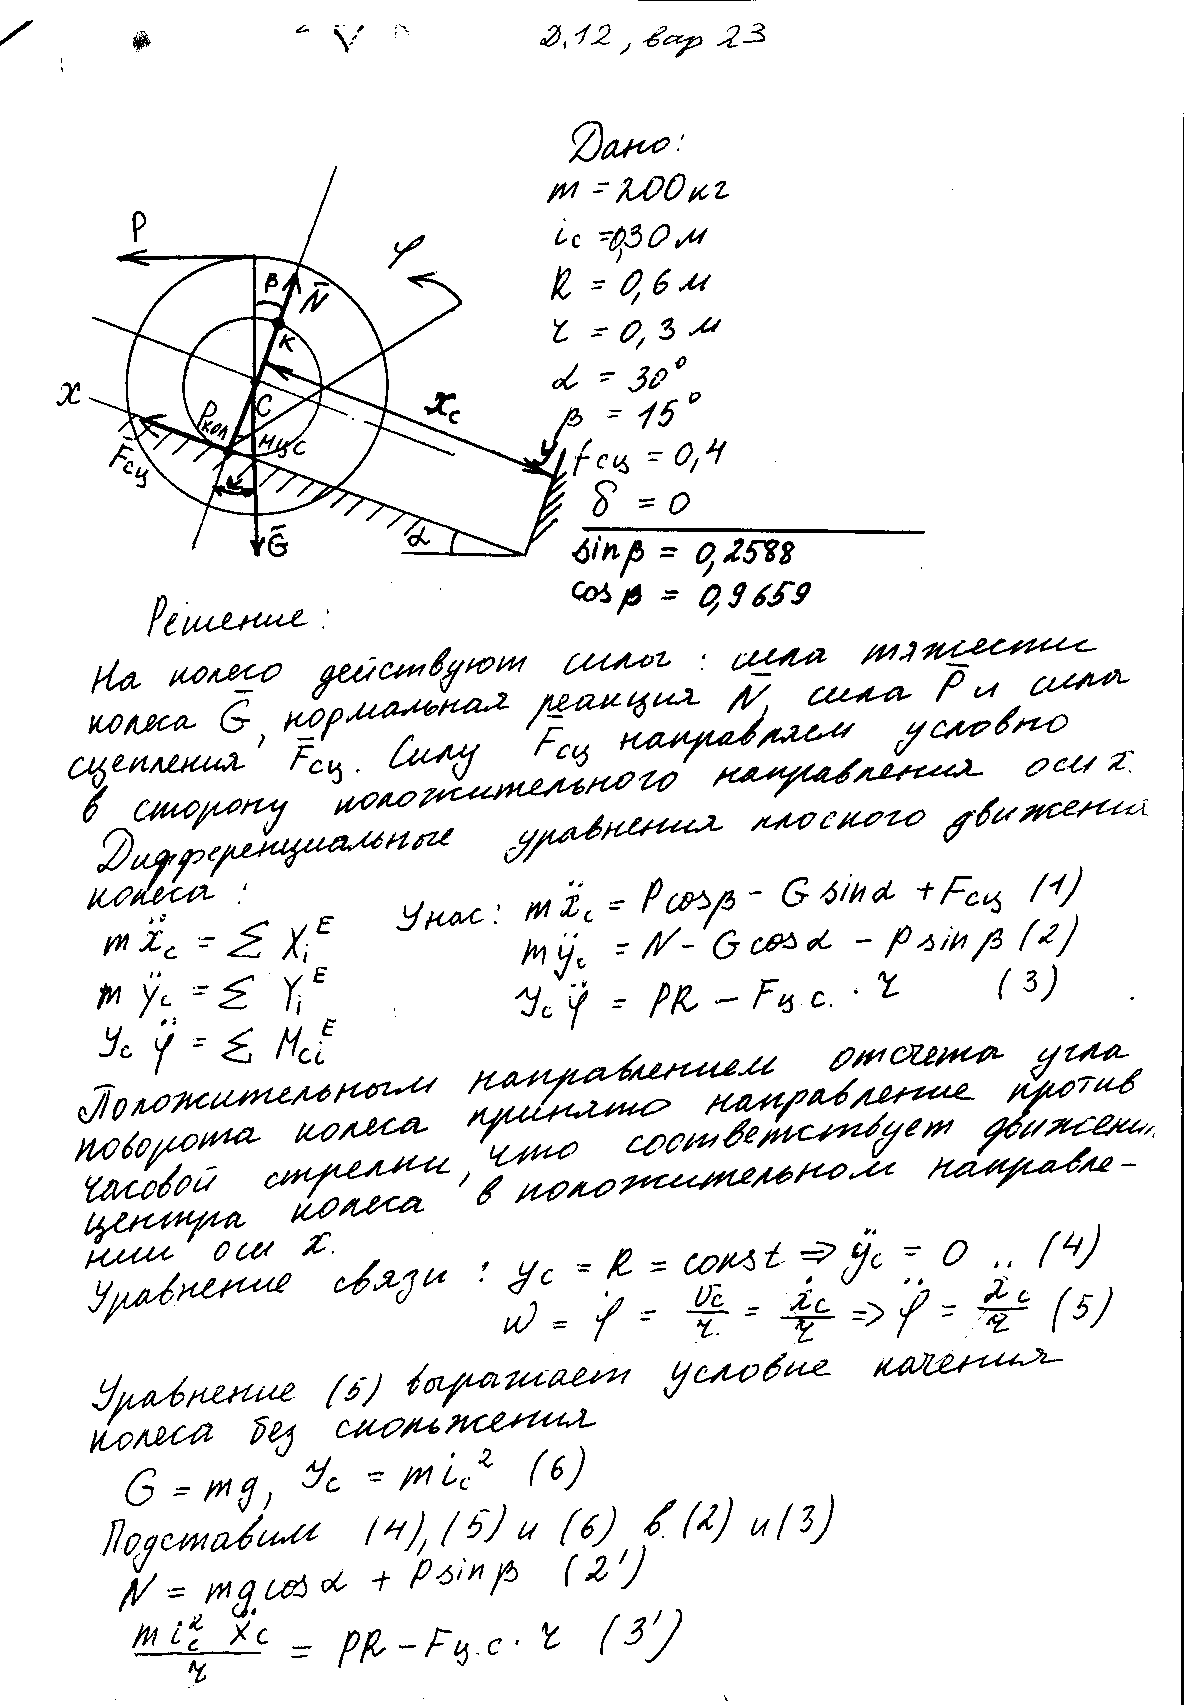 Д.12, вар 23
Дано:
m = 200 кг
ic = 0,30 м
R = 0,6 м
r = 0,3 м
α = 30°
β = 15°
fсц = 0,4
δ = 0
sin β = 0,2588
cos β = 0,9659
P
φ
β
N̄
K
x
C
xc
y
Pкол
МЦС
F̄сц
Ḡ
α
Решение:
На колесо действуют силы: сила тяжести
колеса Ḡ, нормальная реакция N̄, сила P̄ и сила
сцепления F̄сц. Силу F̄сц направляем условно
в сторону положительного направления оси x.
Дифференциальные уравнения плоского движения
колеса:
mẍc = Σ XiE
mÿc = Σ YiE
Jc φ̈ = Σ MciE
У нас: mẍc = P cosβ − G sinα + Fсц (1)
mÿc = N − G cosα − P sinβ (2)
Jc φ̈ = PR − Fц.с. · r (3)
Положительным направлением отсчета угла
поворота колеса принято направление против
часовой стрелки, что соответствует движени
центра колеса в положительном направле-
нии оси x.
Уравнение связи: yc = R = const ⇒ ÿc = 0 .. (4)
w = φ̇ = vc/r = ẋc/r ⇒ φ̈ = ẍc/r (5)
Уравнение (5) выражает условие качения
колеса без скольжения
G = mg, Jc = mic² (6)
Подставим (4), (5) и (6) в (2) и (3)
N = mg cosα + P sinβ (2')
mic² ẍc/r = PR − Fц.с · r (3')